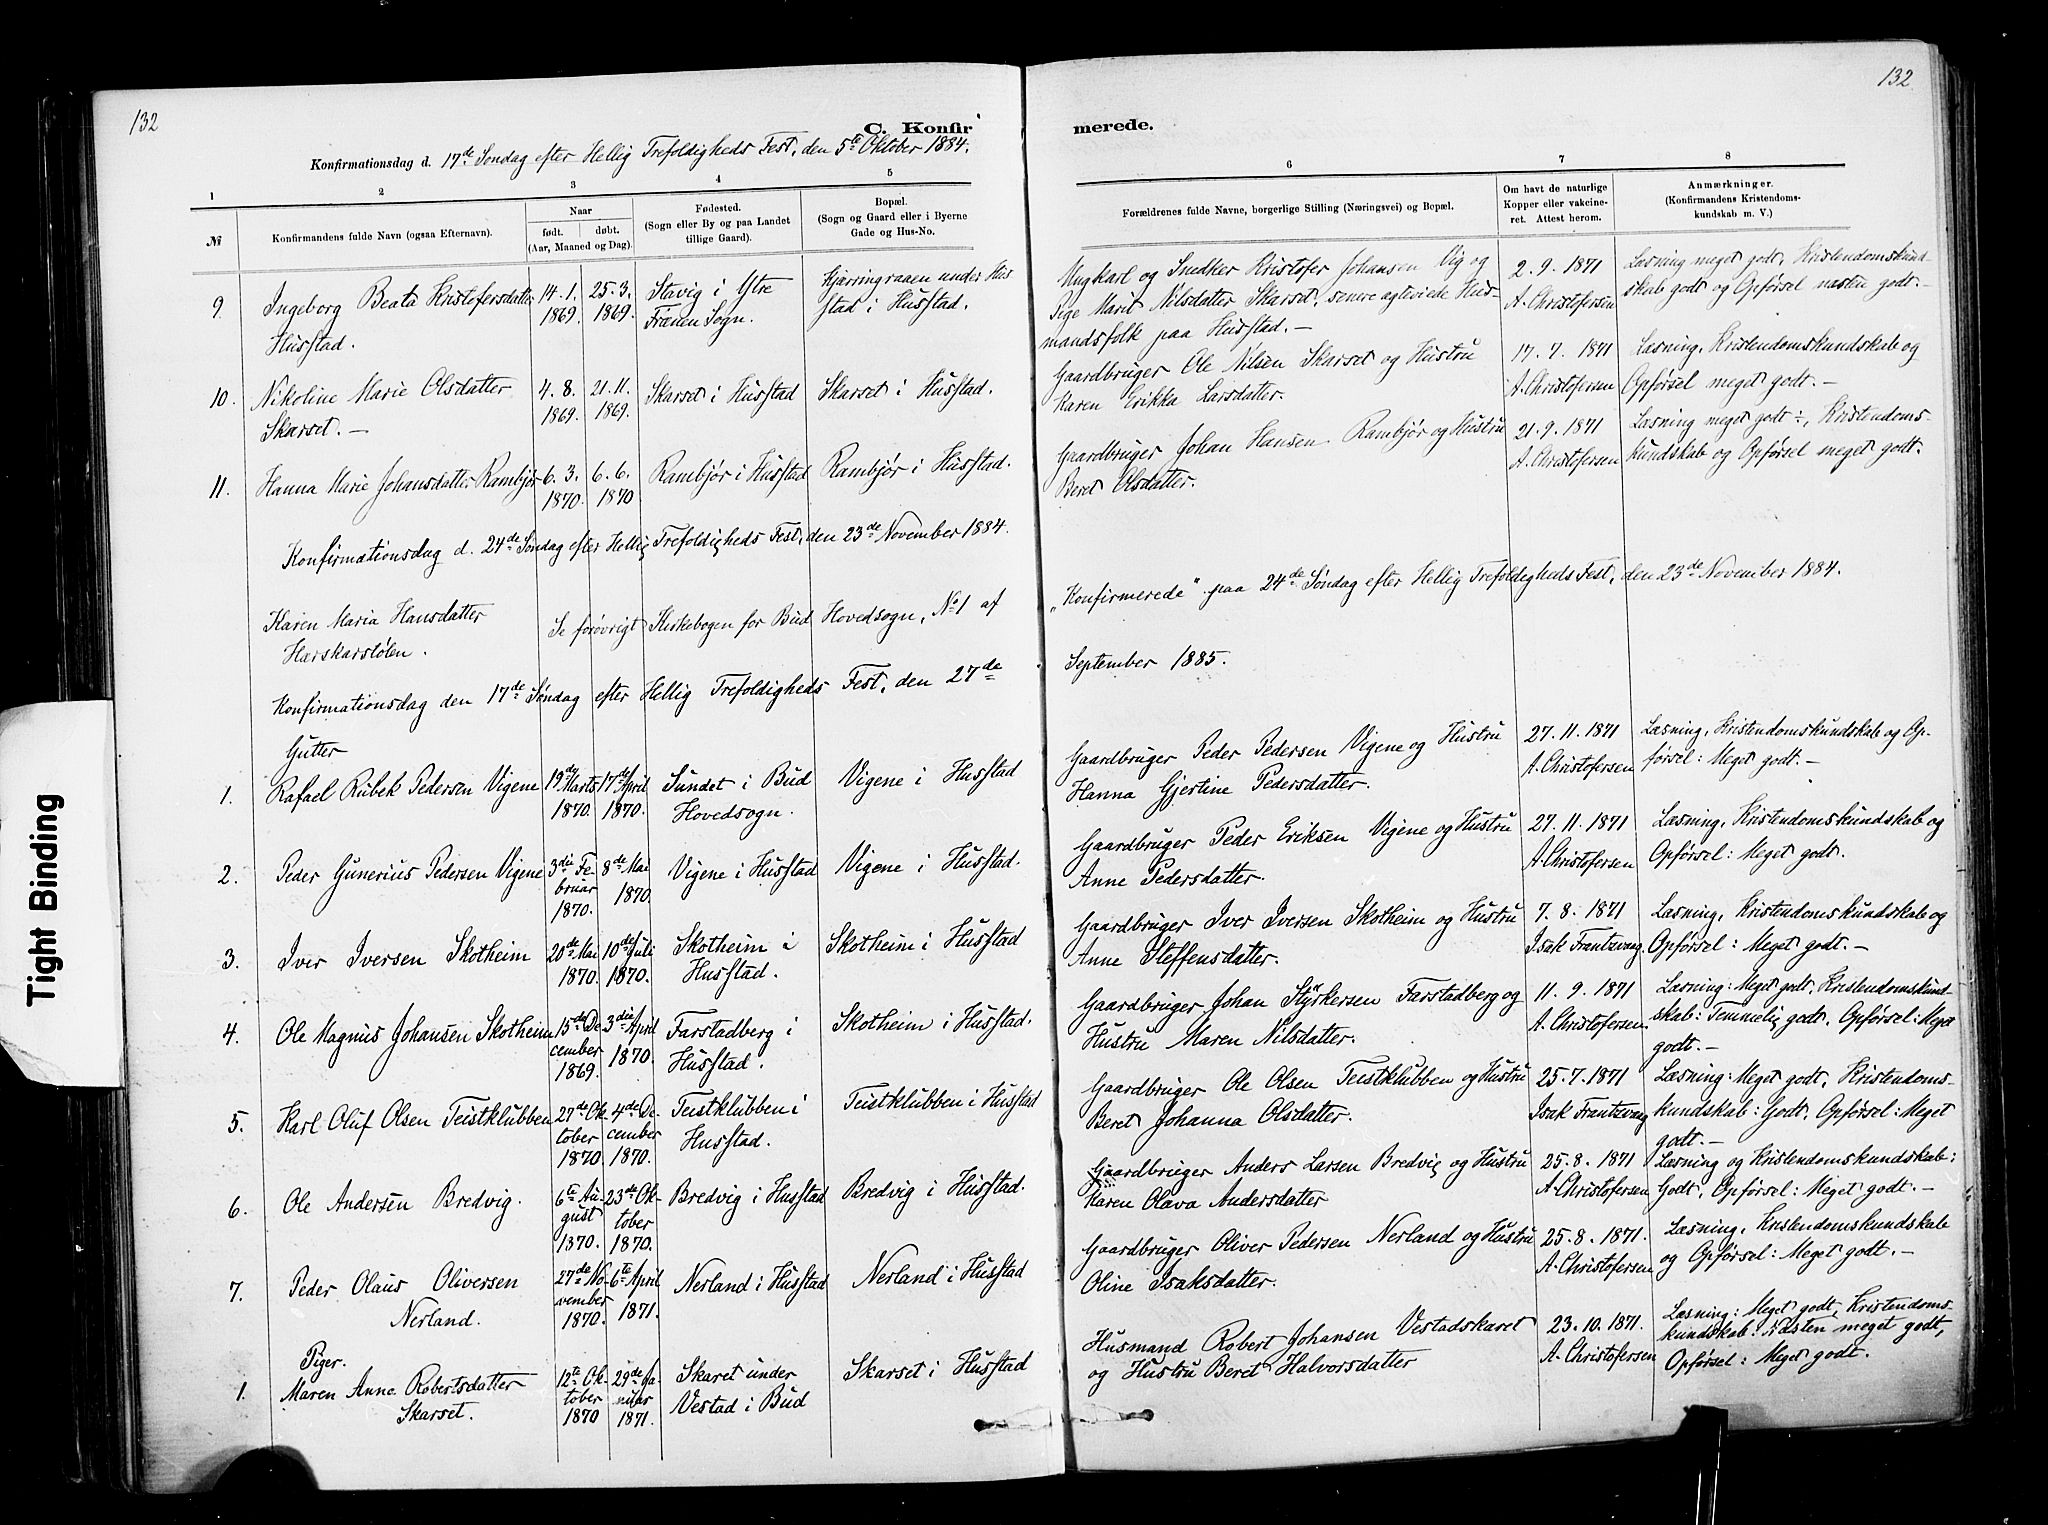 132
132
C. Konfir
merede.
Konfirmationsdag d. 17de Søndag efter Hellig Trefoldigheds Fest, den 5te Oktober 1884.
1 2 3 4 5 6 7 8
№
Konfirmandens fulde Navn (ogsaa Efternavn).
Naar
født. døbt.
(Aar, Maaned og Dag).
Fødested.
(Sogn eller By og paa Landet
tillige Gaard).
Bopæl.
(Sogn og Gaard eller i Byerne
Gade og Hus-No.
Forældrenes fulde Navne, borgerlige Stilling (Næringsvei) og Bopæl.
Om havt de naturlige
Kopper eller vakcine-
ret. Attest herom.
Anmærkninger.
(Konfirmandens Kristendoms-
kundskab m. V.)
9. Ingeborg Beata Kristofersdatter
Husstad.
14. 1.
1869.
25. 3.
1869.
Stavig i Ytre
Frænen Sogn.
Hjærringraaen under Hus
stad i Husstad.
Ungkarl og Snedker Kristofer Johansen Vig og
Pige Marit Nilsdatter Skarset, senere agteviede Hus-
mandsfolk paa Husstad. —
2. 9. 1871
A. Christofersen
Læsning meget godt, Kristendomskund-
skab godt og Opførsel næsten godt. —
10. Nikoline Marie Olsdatter
Skarset. —
4. 8.
1869.
21. 11.
1869.
Skarset i Husstad
Skarset i Husstad.
Gaardbruger Ole Nilsen Skarset og Hustru
Karen Erikka Larsdatter.
17. 7. 1871
A. Christofersen
Læsning, Kristendomskundskab og
Opførsel meget godt. —
11. Hanna Marie Johansdatter Rambjør
6. 3.
1870.
6. 6.
1870
Rambjør i Husstad
Rambjør i Husstad.
Gaardbruger Johan Hansen Rambjør og Hustru
Beret Olsdatter.
21. 9. 1871
A. Christofersen
Læsning meget godt ÷, Kristendoms-
kundskab og Opførsel meget godt.
Konfirmationsdag d. 24de Søndag efter Hellig Trefoldigheds Fest, den 23de November 1884.
Karen Maria Hansdatter
Harskarstølen.
Se forøvrigt Kirkebogen for Bud Hovedsogn, No 1 af
„Konfirmerede" paa 24de Søndag efter Hellig Trefoldigheds Fest, den 23de November 1884.
Konfirmationsdag den 17de Søndag efter Hellig Trefoldigheds Fest, den 27de
September 1885.
Gutter
1. Rafael Rubek Pedersen Vigene
19de Marts
1870.
17de April
1870.
Sundet i Bud
Hovedsogn.
Vigene i Husstad
Gaardbruger Peder Pedersen Vigene og Hustru
Hanna Gjertine Pedersdatter.
27. 11. 1871
A. Christofersen
Læsning, Kristendomskundskab og Op-
førsel: Meget godt. —
2. Peder Gunerius Pedersen Vigene
3die Fe-
bruar
1870.
8de Mai
1870.
Vigene i Husstad
Vigene i Husstad.
Gaardbruger Peder Eriksen Vigene og Hustru
Anne Pedersdatter.
27. 11. 1871
A. Christofersen
Læsning, Kristendomskundskab og
Opførsel: Meget godt.
3. Iver Iversen Skotheim
20de Mai
1870.
10de Juli
1870.
Skotheim i
Husstad.
Skotheim i Husstad
Gaardbruger Iver Iversen Skotheim og Hustru
Anne Steffensdatter.
7. 8. 1871
Isak Frantzvaag
Læsning, Kristendomskundskab og
Opførsel: Meget godt. —
4. Ole Magnus Johansen Skotheim
15de De-
cember
1869.
3die April
1870.
Farstadberg i
Husstad.
Skotheim i Husstad.
Gaardbruger Johan Styrkersen Farstadberg og
Hustru Maren Nilsdatter.
11. 9. 1871
A. Christofersen
Læsning: Meget godt, Kristendomskund-
skab: Temmelig godt, Opførsel: Meget
godt. —
5. Karl Oluf Olsen Teistklubben
27de Ok-
tober
1870
4de De-
cember
1870.
Teistklubben i
Husstad.
Teistklubben i Husstad
Gaardbruger Ole Olsen Teistklubben og Hustru
Beret Johanna Olsdatter.
25. 7. 1871
Isak Frantzvaag
Læsning: Meget godt, Kristendoms-
kundskab: Godt, Opførsel: Meget
godt. —
6. Ole Andersen Bredvig.
6te Au-
gust
1870.
23de Ok-
tober
1870.
Bredvig i Husstad
Bredvig i Husstad.
Gaardbruger Anders Larsen Bredvig og Hustru
Karen Olava Andersdatter
25. 8. 1871
A. Christofersen
Læsning og Kristendomskundskab:
Godt, Opførsel: Meget godt. —
7. Peder Olaus Oliversen
Nerland.
27de No-
vember
1870.
6te April
1871.
Nerland i Husstad
Nerland i Husstad
Gaardbruger Oliver Pedersen Nerland og Hustru
Oline Isaksdatter.
25. 8. 1871.
A. Christofersen
Læsning, Kristendomskundskab
og Opførsel: Meget godt. —
Piger.
1. Maren Anne Robertsdatter
Skarset.
12te Ok-
tober
1870
29de Ja-
nuar
1871.
Skaret under
Vestad i Bud
Skarset i Husstad
Husmand Robert Johansen Vestadskaret
og Hustru Beret Halvorsdatter
23. 10. 1871.
A. Christofersen
Læsning: Meget godt, Kristendoms-
kundskab: Næsten meget godt,
Opførsel: Meget godt.
Tight Binding